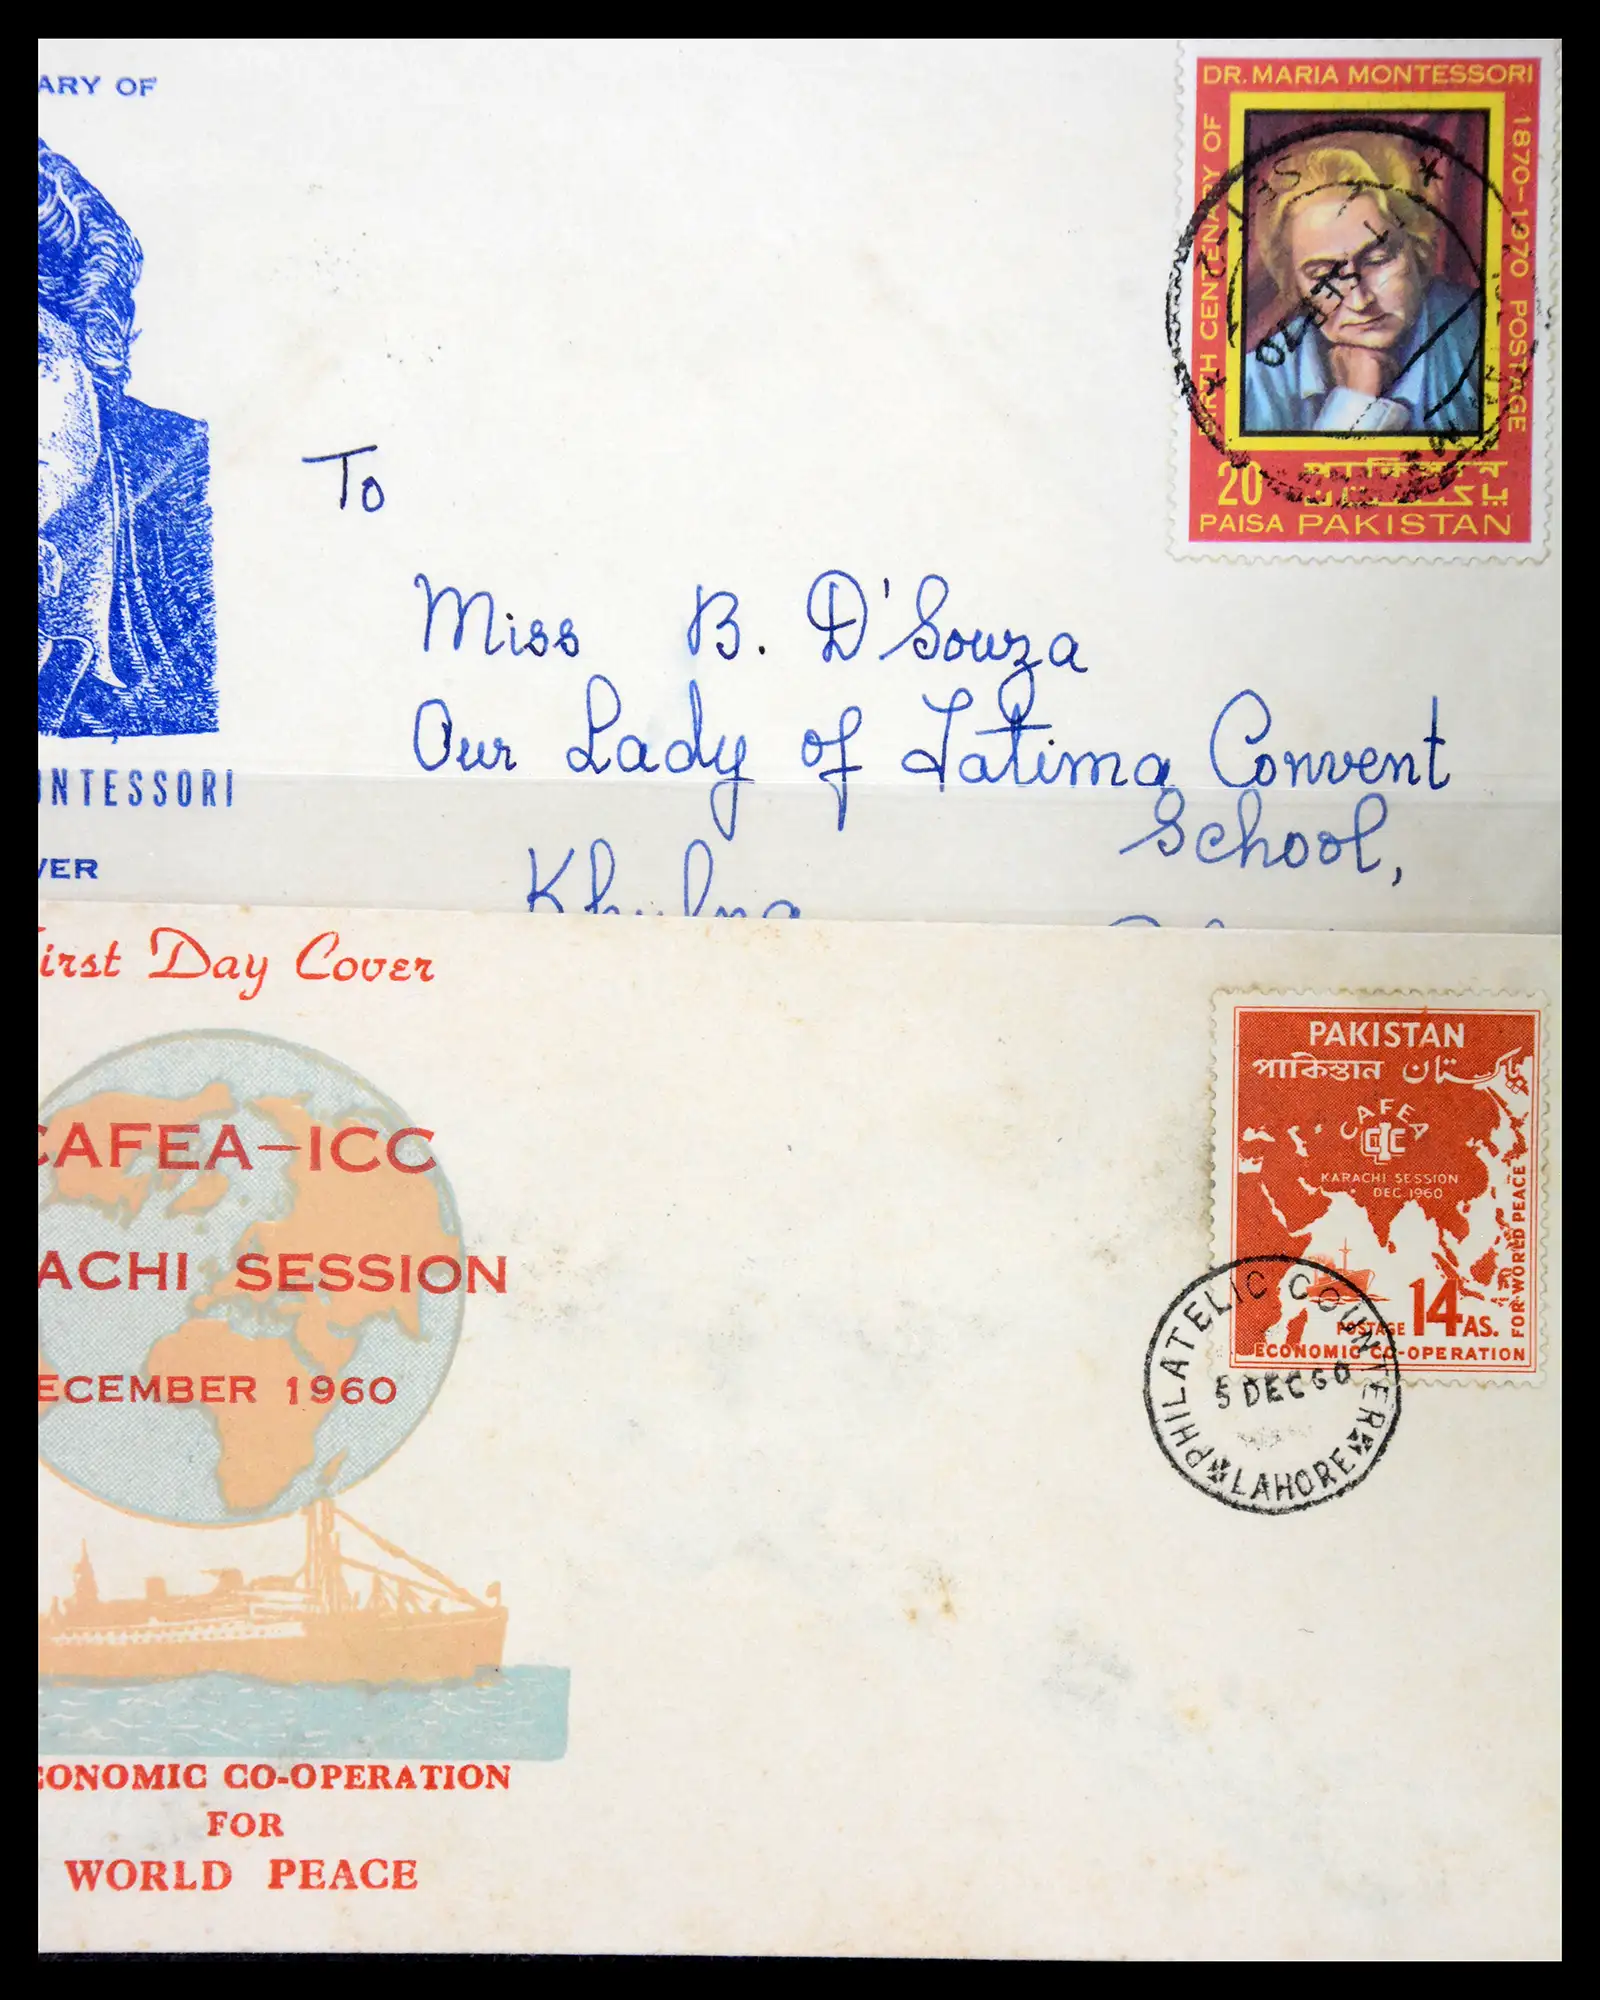 ARY OF
DR. MARIA MONTESSORI
BIRTH CENTENARY OF
1870-1970 POSTAGE
SEP 70
20
পাকিস্তান
پاکستان
PAISA PAKISTAN
To
Miss B. D'Souza
Our Lady of Fatima Convent
School,
Khulna
ONTESSORI
VER
First Day Cover
CAFEA-ICC
ACHI SESSION
ECEMBER 1960
CONOMIC CO-OPERATION
FOR
WORLD PEACE
PAKISTAN
পাকিস্তান پاکستان
CAFEA
ICC
KARACHI SESSION
DEC. 1960
FOR WORLD PEACE
POSTAGE 14 AS.
ECONOMIC CO-OPERATION
PHILATELIC COUNTER
5 DEC 60
LAHORE